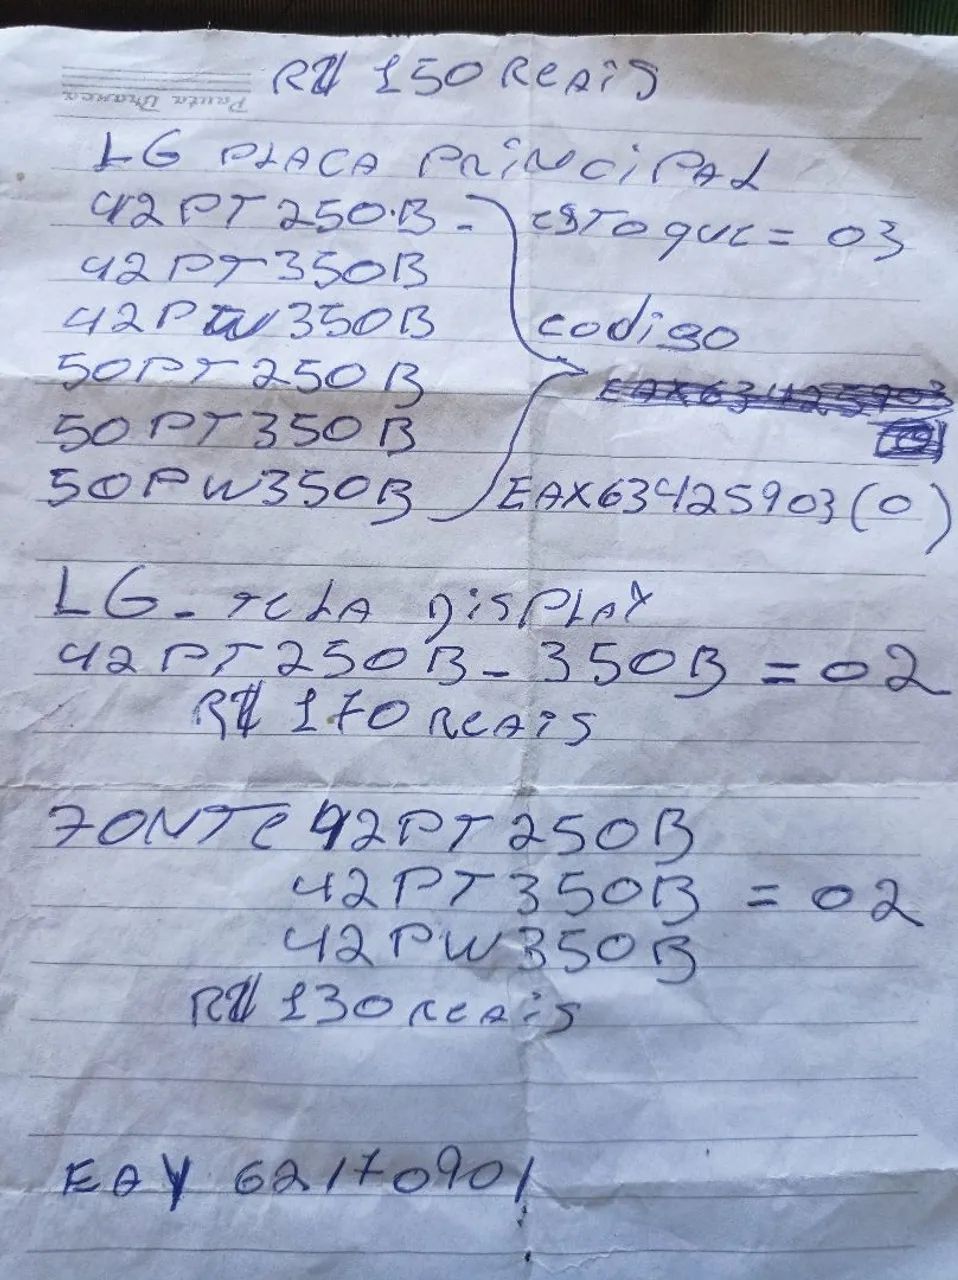 R$ 150 ReAis
Pauta Branca
LG PLACA PRiNCiPAL
42PT250.B - esToque = 03
42PT350B
42PW350B codigo
50PT250B EAX63425903
50PT350B
50PW350B EAX63425903(0)
LG - TeLA DisPLAY
42PT250B - 350B = 02
R$ 170 ReAis
FONTe 42PT250B
42PT350B = 02
42PW350B
R$ 130 ReAis
EAY 62170901